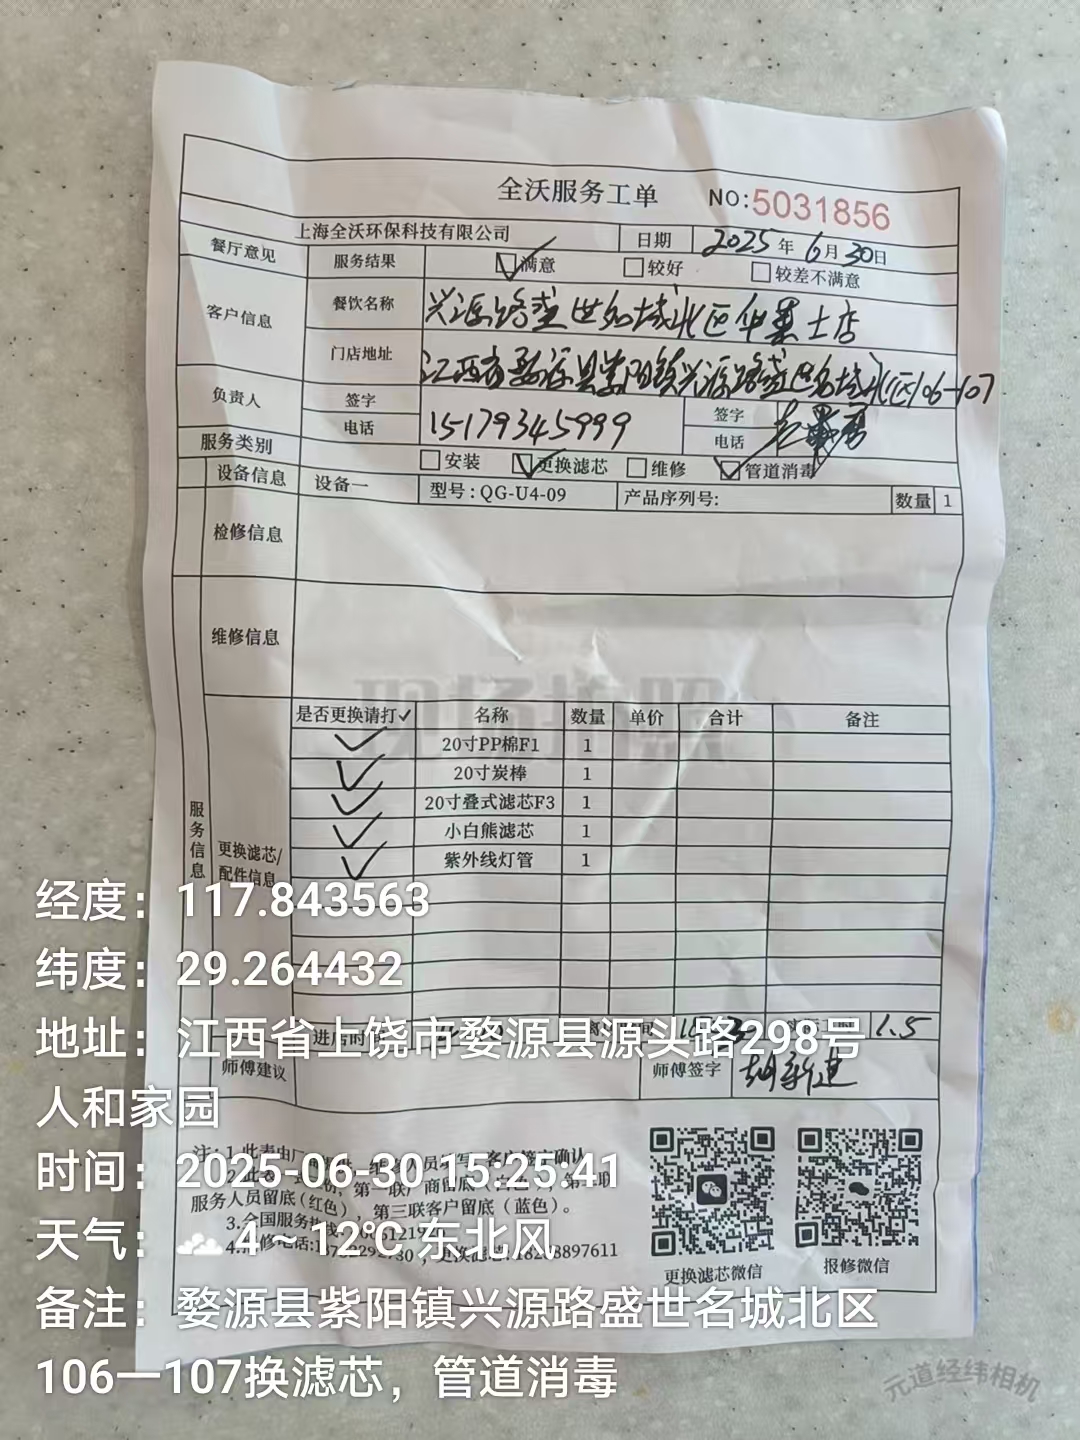 全沃服务工单 NO:5031856
上海全沃环保科技有限公司 日期 2025年6月30日
餐厅意见 服务结果 满意 较好 较差不满意
客户信息 餐饮名称 兴源路盛世名城北区华莱士店
门店地址 江西省婺源县紫阳镇兴源路盛世名城北区106-107
负责人 签字 签字
电话 15179345999 电话
服务类别 安装 更换滤芯 维修 管道消毒
设备信息 设备一 型号:QG-U4-09 产品序列号: 数量 1
检修信息
维修信息
现场拍照
是否更换请打✓ 名称 数量 单价 合计 备注
✓ 20寸PP棉F1 1
✓ 20寸炭棒 1
✓ 20寸叠式滤芯F3 1
✓ 小白熊滤芯 1
✓ 紫外线灯管 1
服务信息
更换滤芯/
配件信息
进店时间 1.5
师傅建议 师傅签字 胡新建
服务人员留底(红色),第三联客户留底(蓝色)。
更换滤芯微信 报修微信
经度:117.843563
纬度:29.264432
地址:江西省上饶市婺源县源头路298号
人和家园
时间:2025-06-30 15:25:41
天气: 4~12℃ 东北风
备注:婺源县紫阳镇兴源路盛世名城北区
106一107换滤芯,管道消毒
元道经纬相机